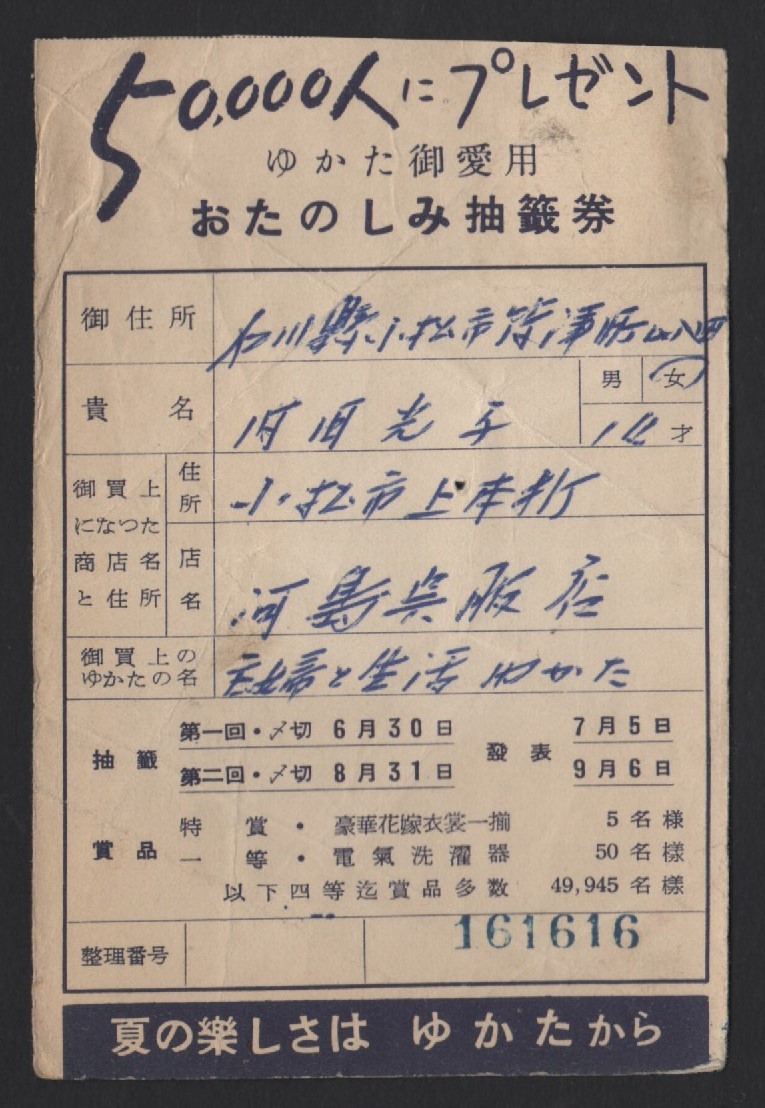 50,000人にプレゼント
ゆかた御愛用
おたのしみ抽籤券
御住所 石川縣小松市
貴名 光子 男 女 才
御買上になつた商店名と住所
住所 小松市上本折
店名 河島呉服店
御買上のゆかたの名 主婦と生活ゆかた
抽籤 第一回・〆切 6月30日 發表 7月5日
第二回・〆切 8月31日 9月6日
賞品 特賞・豪華花嫁衣裳一揃 5名様
一等・電氣洗濯器 50名様
以下四等迄賞品多数 49,945名様
整理番号 161616
夏の楽しさは ゆかたから